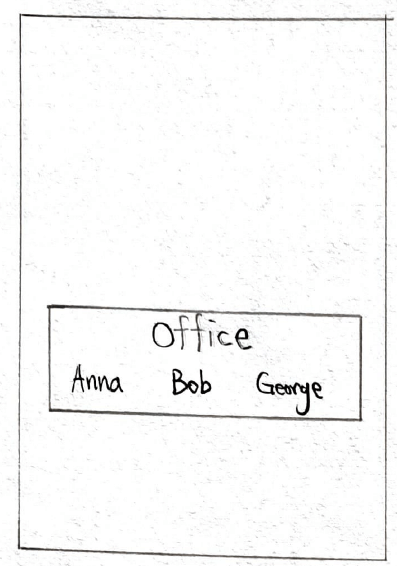 Office
Anna Bob George